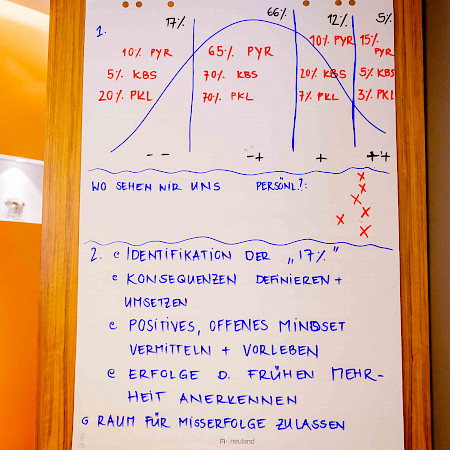 1. 17% 66% 12% 5%
10% PYR 65% PYR 10% PYR 15% PYR
5% KBS 70% KBS 20% KBS 5% KBS
20% PKL 70% PKL 7% PKL 3% PKL
-- -+ + ++
WO SEHEN WIR UNS PERSÖNL?:
x
x
x
x x
x
2. IDENTIFIKATION DER „17%"
KONSEQUENZEN DEFINIEREN +
UMSETZEN
POSITIVES, OFFENES MINDSET
VERMITTELN + VORLEBEN
ERFOLGE D. FRÜHEN MEHR-
HEIT ANERKENNEN
RAUM FÜR MISSERFOLGE ZULASSEN
neuland